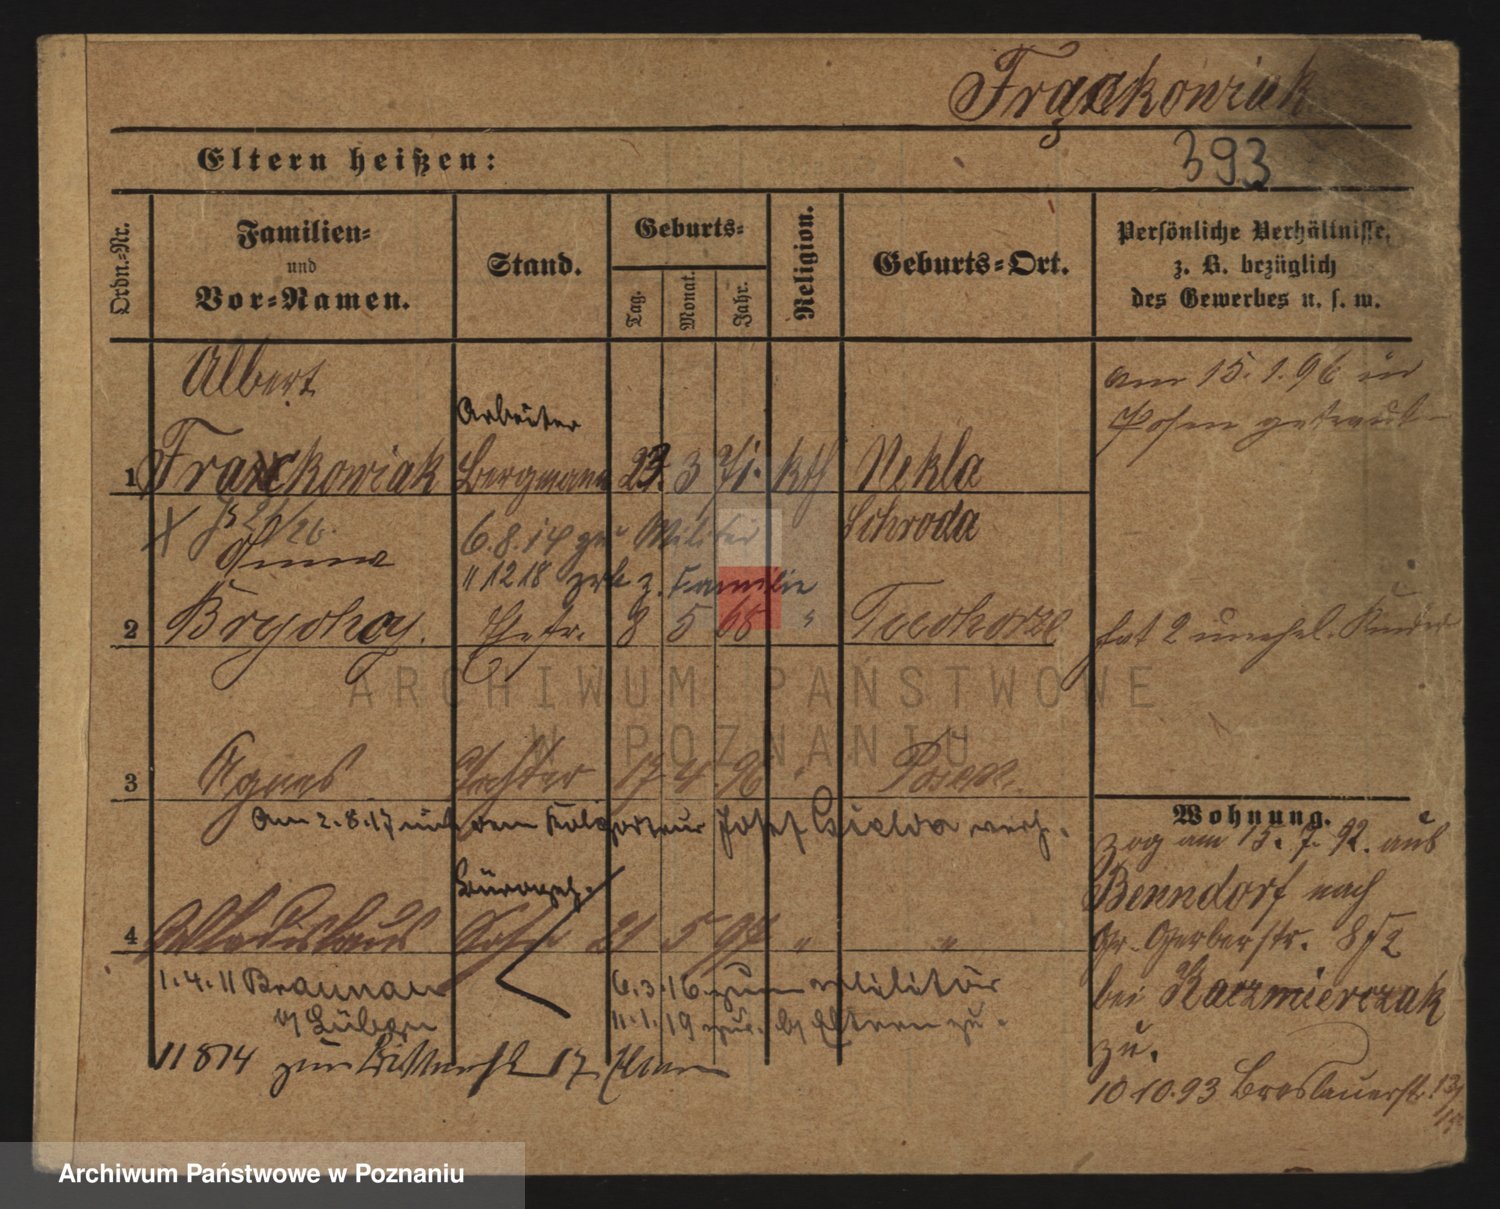 Frąckowiak
393
Eltern heißen:
Ordn.-Nr.
Familien-
und
Vor-Namen.
Stand.
Geburts-
Tag.
Monat.
Jahr.
Religion.
Geburts-Ort.
Persönliche Verhältnisse,
z. B. bezüglich
des Gewerbes u. s. w.
Albert
am 15.1.96 in
Arbeiter
Posen getraut
1 Frackowiak Bergmann 23. 3 71. kth Nekla
Schroda
X
Anna
6.8.14 zur Militär
" 12 18 zrk z. Familie
2 Ehefr. 8 5 68 "
hat 2 unehel. Kinder
ARCHIWUM PAŃSTWOWE
W POZNANIU
3 Agnes Tochter 17 4 96 " Posen
Am 2.8.17 mit dem Josef Gielda verh.
Wohnung.
zog am 15. 7. 92. aus
Benndorf nach
4 Wladislaus Sohn 21 5 97 " "
Gr. Gerberstr. 8
bei Kaczmierczak
zu.
1.4.11 Braunau
b/ Lüban
6.3.16 zum Militär
11.1.19 zur. b/ Eltern zu.
11 8 14 zum
10 10.93 Breslauerstr.
Archiwum Państwowe w Poznaniu